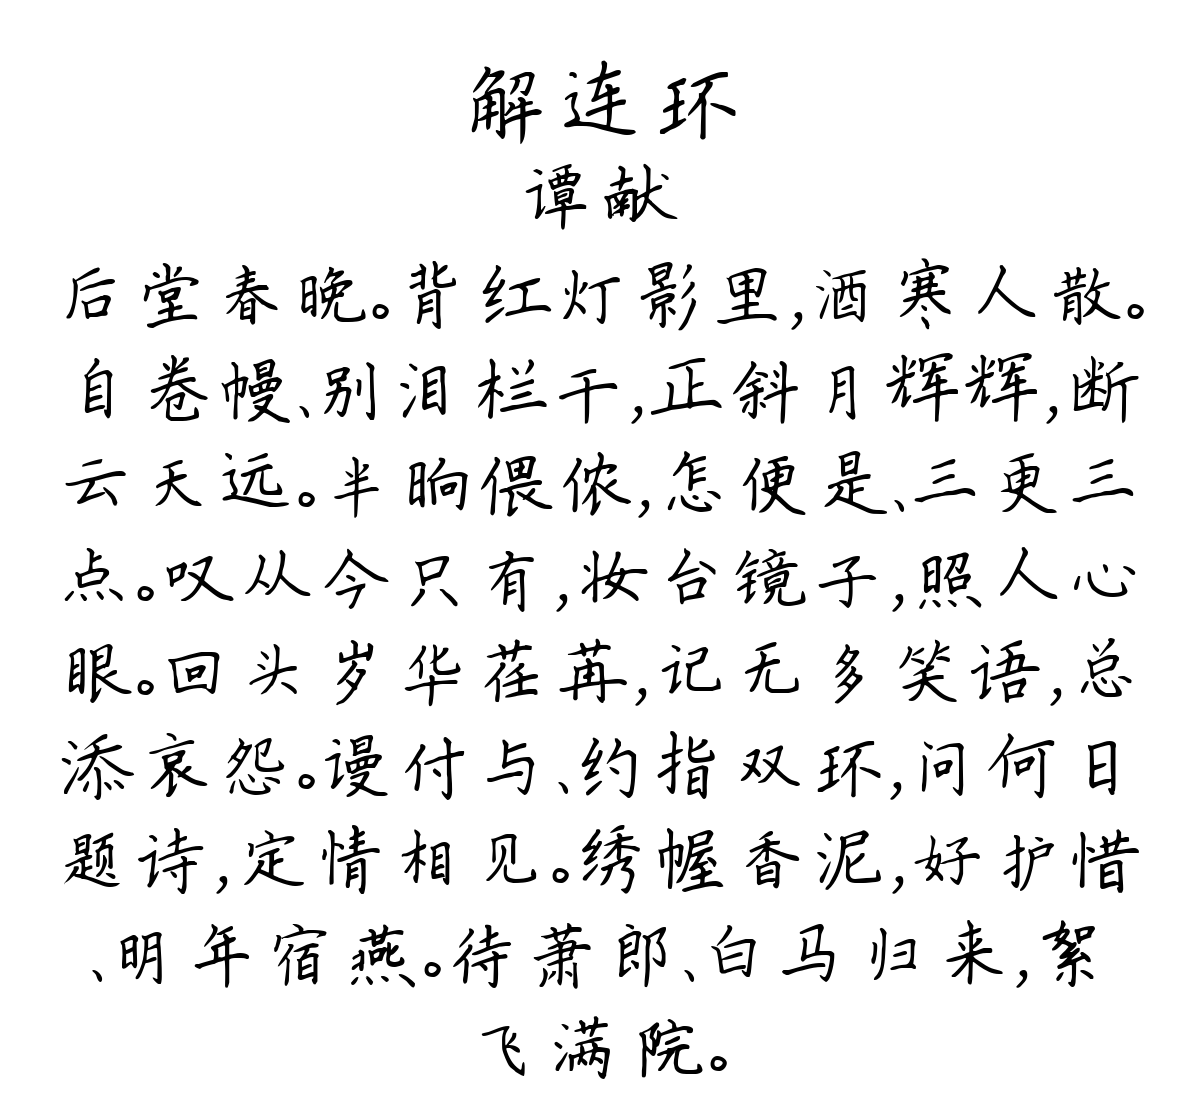 解连环
谭献
后堂春晚。背红灯影里,酒寒人散。
自卷幔、别泪栏干,正斜月辉辉,断
云天远。半晌偎侬,怎便是、三更三
点。叹从今只有,妆台镜子,照人心
眼。回头岁华荏苒,记无多笑语,总
添哀怨。谩付与、约指双环,问何日
题诗,定情相见。绣幄香泥,好护惜
、明年宿燕。待萧郎、白马归来,絮
飞满院。